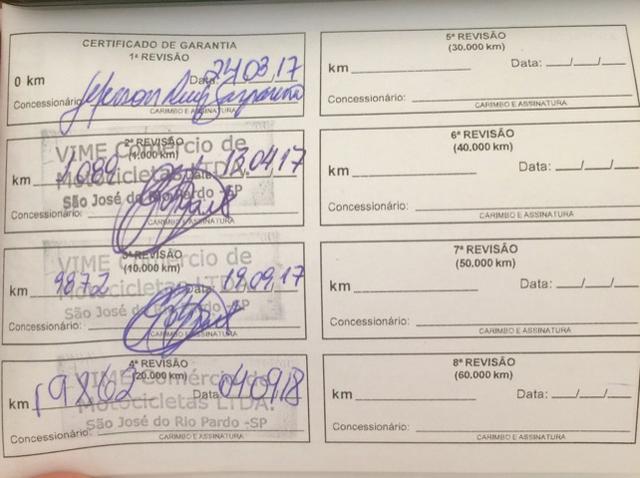 CERTIFICADO DE GARANTIA
1ª REVISÃO
0 km Data: 24,03,17
Concessionário:
CARIMBO E ASSINATURA
2ª REVISÃO
(1.000 km)
VIME Comércio de
km 1089 Data 13,04,17
Motocicletas LTDA.
São José do Rio Pardo -SP
Concessionário:
CARIMBO E ASSINATURA
3ª REVISÃO
VIME Comércio de
(10.000 km)
km 9872 Data: 19,09,17
Motocicletas LTDA.
São José do Rio Pardo -SP
Concessionário:
CARIMBO E ASSINATURA
4ª REVISÃO
VIME Comércio de
(20.000 km)
km 19862 Data 04,09,18
Motocicletas LTDA.
São José do Rio Pardo -SP
Concessionário:
CARIMBO E ASSINATURA
5ª REVISÃO
(30.000 km)
km Data: __/__/__
Concessionário:
CARIMBO E ASSINATURA
6ª REVISÃO
(40.000 km)
km Data: __/__/__
Concessionário:
CARIMBO E ASSINATURA
7ª REVISÃO
(50.000 km)
km Data: __/__/__
Concessionário:
CARIMBO E ASSINATURA
8ª REVISÃO
(60.000 km)
km Data: __/__/__
Concessionário:
CARIMBO E ASSINATURA